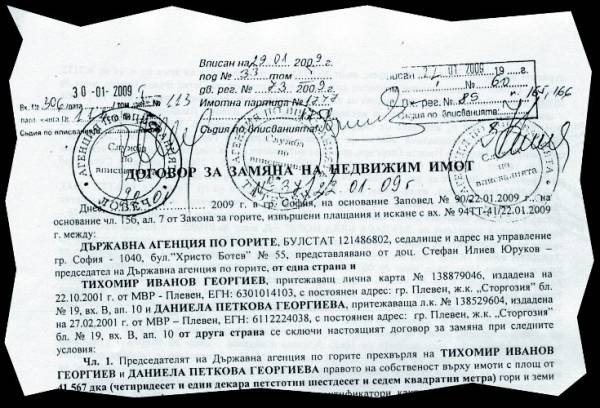 30-01-2009
Вписан на 29.01 2009г.
под № 33 том I
дв. рег. № 73 2009г.
Имотна партида № 1777
Съдия по вписванията:
вписан 22.01 2009 19 г.
№ 60
дв. рег. 85
Съдия по вписванията:
Вх. № 306/дата
том I № 113
Съдия по вписванията
АГЕНЦИЯ ПО ВПИСВАНИЯТА
Служба по вписванията
ЛОВЕЧ
АГЕНЦИЯ ПО ВПИСВАНИЯТА
Служба по вписванията
Служба по вписванията
ДОГОВОР ЗА ЗАМЯНА НА НЕДВИЖИМ ИМОТ
№ 37/22.01.09г
Днес, 2009 г. в гр. София, на основание Заповед № 90/22.01.2009 г., на
основание чл. 156, ал. 7 от Закона за горите, извършени плащания и искане с вх. № 94ТТ-41/22.01.2009
г. между:
ДЪРЖАВНА АГЕНЦИЯ ПО ГОРИТЕ, БУЛСТАТ 121486802, седалище и адрес на управление
гр. София - 1040, бул."Христо Ботев" № 55, представлявано от доц. Стефан Илиев Юруков –
председател на Държавна агенция по горите, от една страна и
ТИХОМИР ИВАНОВ ГЕОРГИЕВ, притежаващ лична карта № 138879046, издадена на
22.10.2001 г. от МВР - Плевен, ЕГН: 6301014103, с постоянен адрес: гр. Плевен, ж.к. „Сторгозия"
бл. № 19, вх. В, ап. 10 и ДАНИЕЛА ПЕТКОВА ГЕОРГИЕВА, притежаваща л.к. № 138529604, издадена
на 27.02.2001 г. от МВР – Плевен, ЕГН: 6112224038, с постоянен адрес: гр. Плевен, ж.к. „Сторгозия"
бл. № 19, вх. В, ап. 10 от друга страна се сключи настоящият договор за замяна при следните
условия:
Чл. 1. Председателят на Държавна агенция по горите прехвърля на ТИХОМИР ИВАНОВ
ГЕОРГИЕВ и ДАНИЕЛА ПЕТКОВА ГЕОРГИЕВА правото на собственост върху имоти с площ от
41,567 дка (четиридесет и един декара петстотин шестдесет и седем квадратни метра) гори и земи